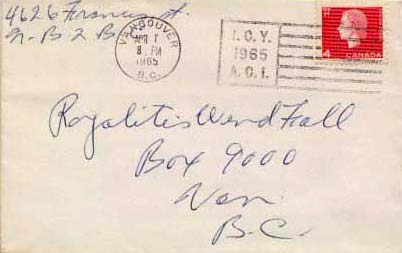 4626 Frances St.
N-B 2 B.C.
VANCOUVER
APR 1
8 PM
1965
B.C.
I.C.Y.
1965
A.C.I.
4
CANADA
Royalitis Wend Fall
Box 9000
Van.
B.C.